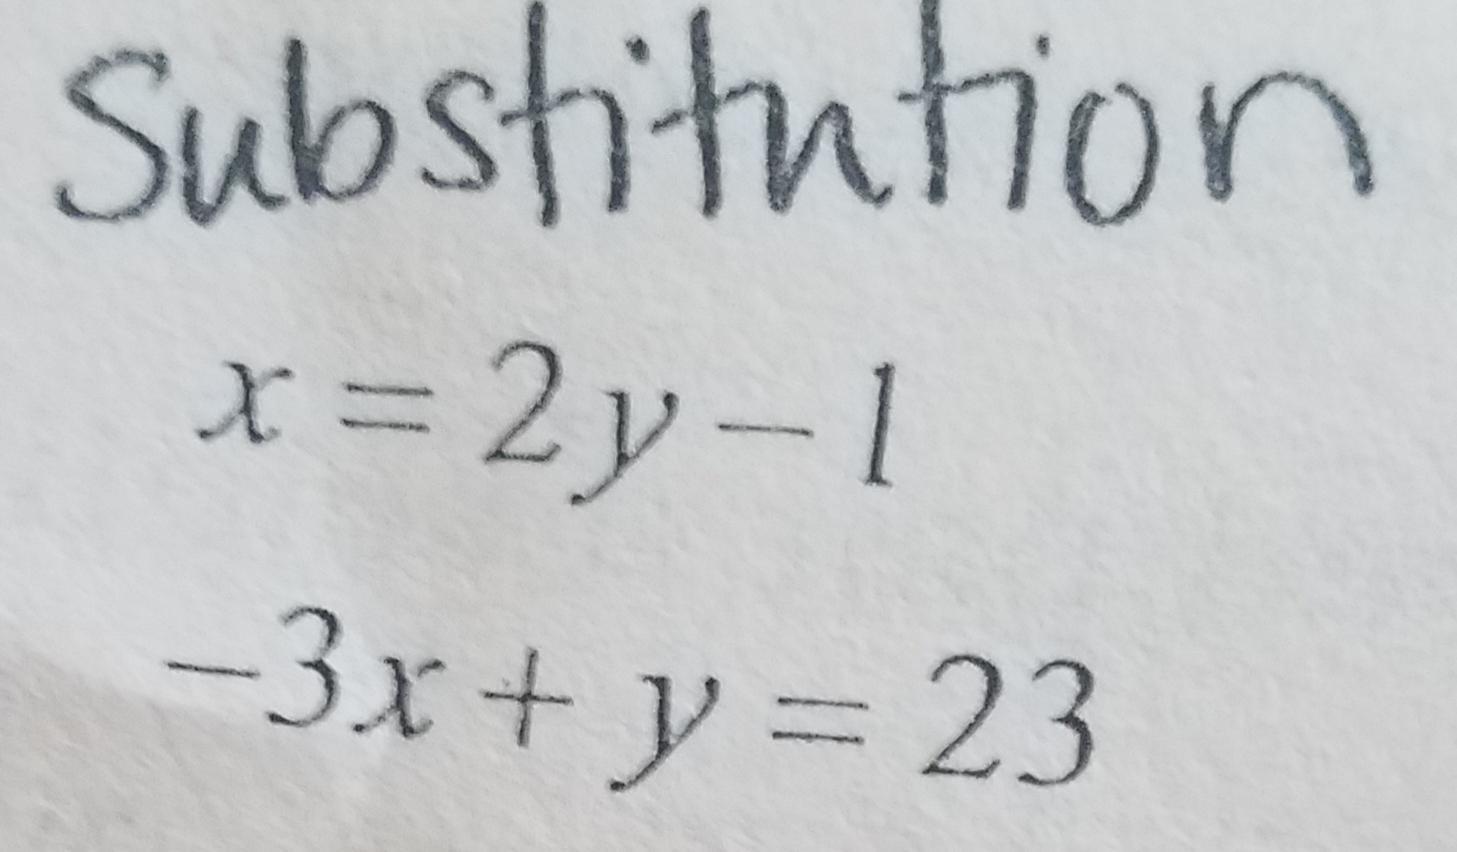 Substitution
x = 2y − 1
−3x + y = 23